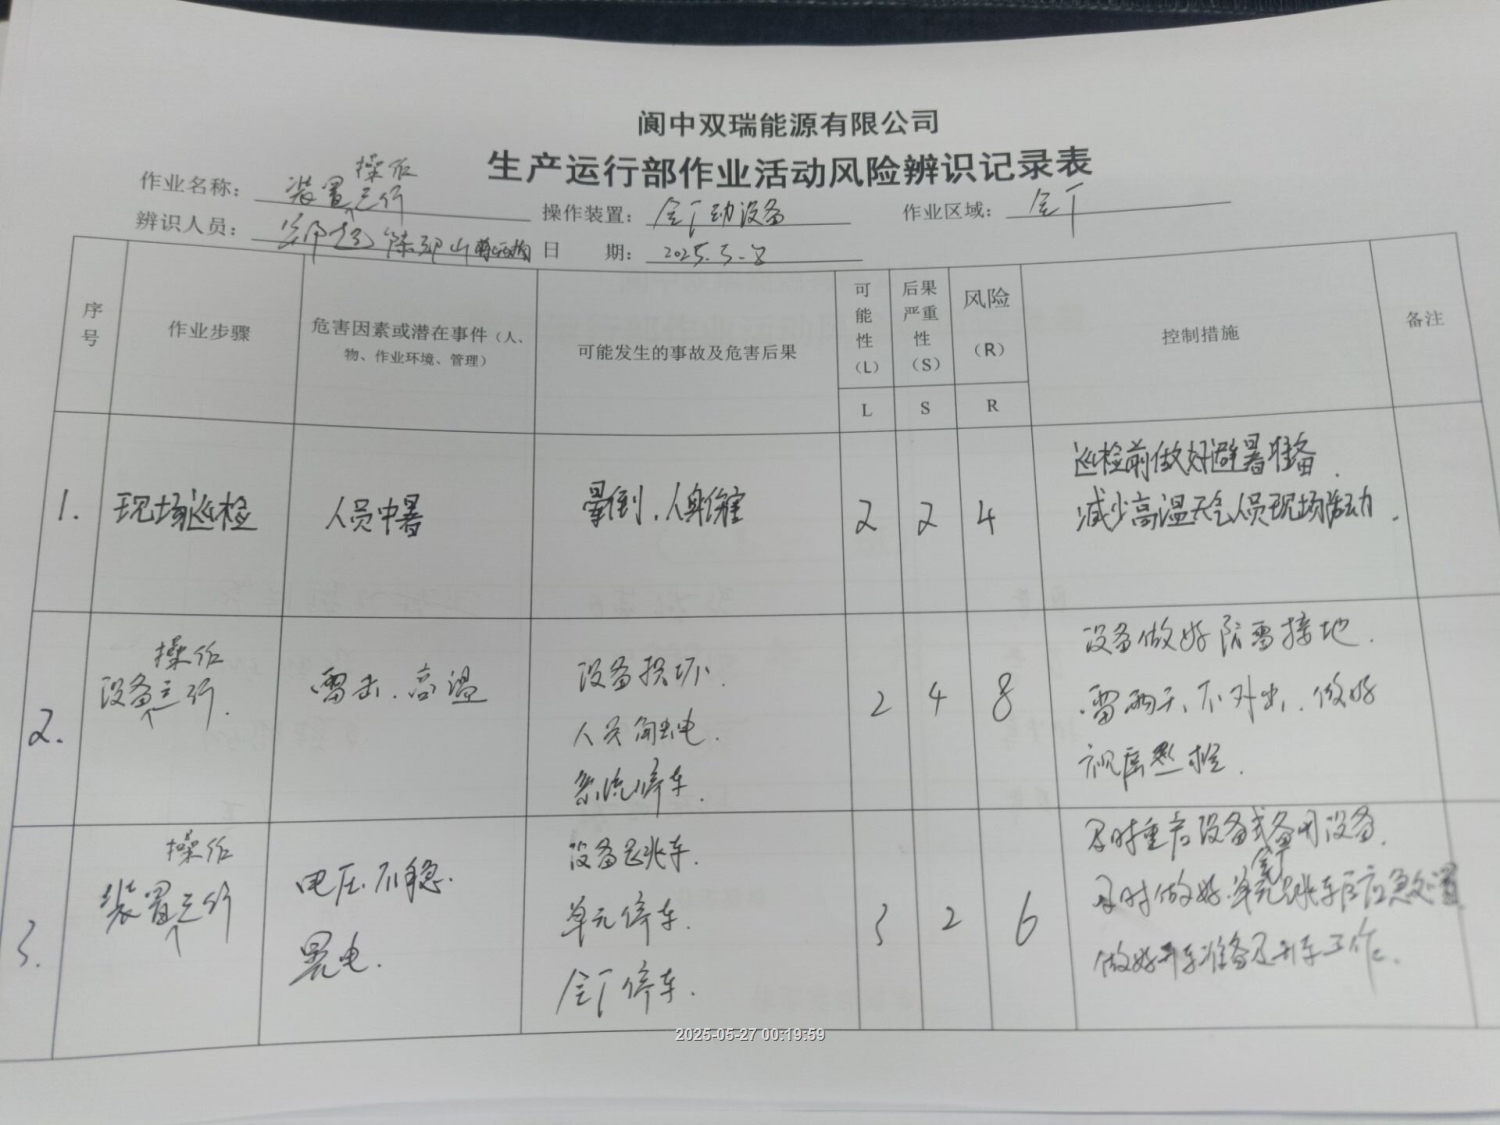 阆中双瑞能源有限公司
生产运行部作业活动风险辨识记录表
作业名称: 装置操作运行 操作装置: 全厂动设备 作业区域: 全厂
辨识人员: 日 期: 2025.5-8
序号 作业步骤 危害因素或潜在事件(人、物、作业环境、管理) 可能发生的事故及危害后果 可能性(L) 后果严重性(S) 风险(R) 控制措施 备注
L S R
1. 现场巡检 人员中暑 晕倒、人身伤害 2 2 4 巡检前做好避暑准备.
减少高温天气人员现场活动.
2. 设备操作运行. 雷击、高温 设备损坏. 2 4 8 设备做好防雷接地.
人员触电. 雷雨天、不外出、做好
系统停车. 视屏巡检.
3. 装置操作运行 电压不稳. 设备跳车. 3 2 6 及时重启设备或备用设备.
晃电. 单元停车. 及时做好单元跳车后应急处置
全厂停车. 做好开车准备及开车工作.
2025-05-27 00:19:59